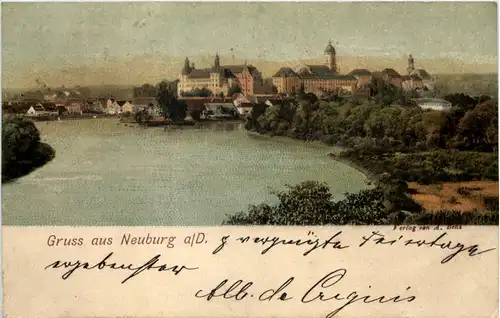 Verlag von A.
Gruss aus Neuburg a/D. vergnügte Feiertage
ergebenst
Alb. de Crignis